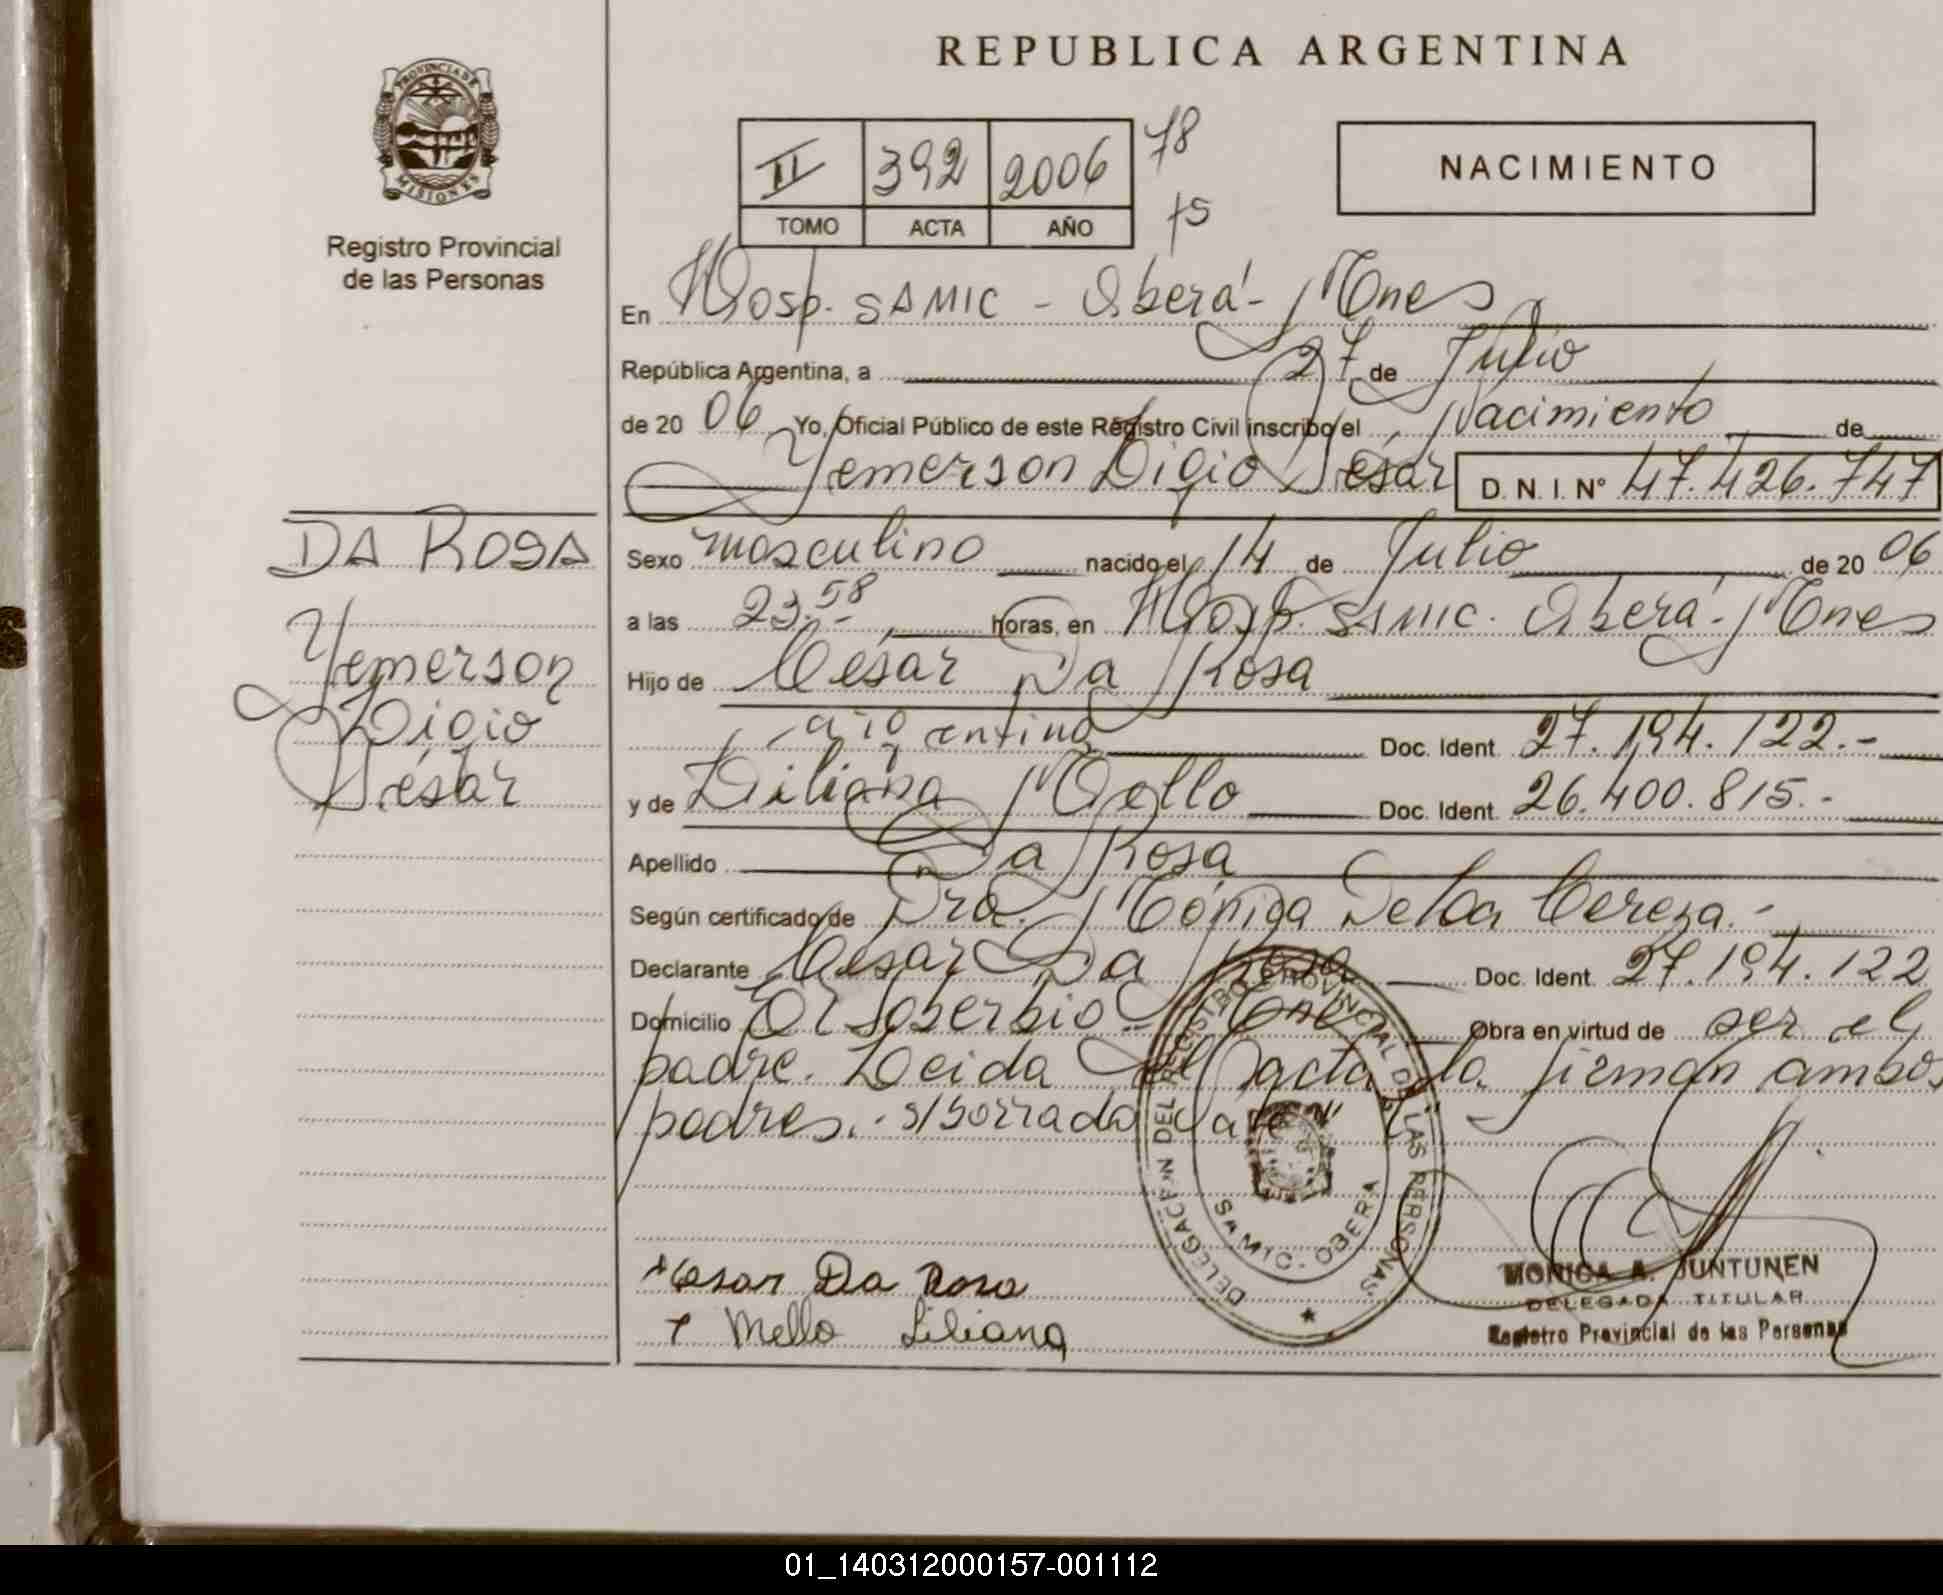 REPUBLICA ARGENTINA
PROVINCIA DE
MISIONES
Registro Provincial
de las Personas
II 392 2006 78
TOMO ACTA AÑO 75
NACIMIENTO
En Hosp. SAMIC - Oberá - Mnes
República Argentina, a 27 de Julio
de 20 06 Yo, Oficial Público de este Registro Civil inscribo el Nacimiento de
Yemerson Digio Césár D.N.I. Nº 47.426.747
DA ROSA
Yemerson
Digio
Césár
Sexo masculino nacido el 14 de Julio de 20 06
a las 23.58 horas, en Hosp. SAMIC. Oberá - Mnes
Hijo de César Da Rosa
argentina Doc. Ident. 27.194.122.-
y de Liliana Mello Doc. Ident. 26.400.815.-
Apellido Da Rosa
Según certificado de Dra. Mónica De la Cereza.-
Declarante César Da Rosa Doc. Ident. 27.194.122
Domicilio El Soberbio - Mnes Obra en virtud de ser el
padre. Leída el acta la firman ambos
padres.- s/borrado vale
DELEGACION DEL REGISTRO PROVINCIAL DE LAS PERSONAS
SAMIC - OBERA
Cesar Da Rosa
Mello Liliana
MONICA A. JUNTUNEN
DELEGADA TITULAR
Registro Provincial de las Personas
01_140312000157-001112